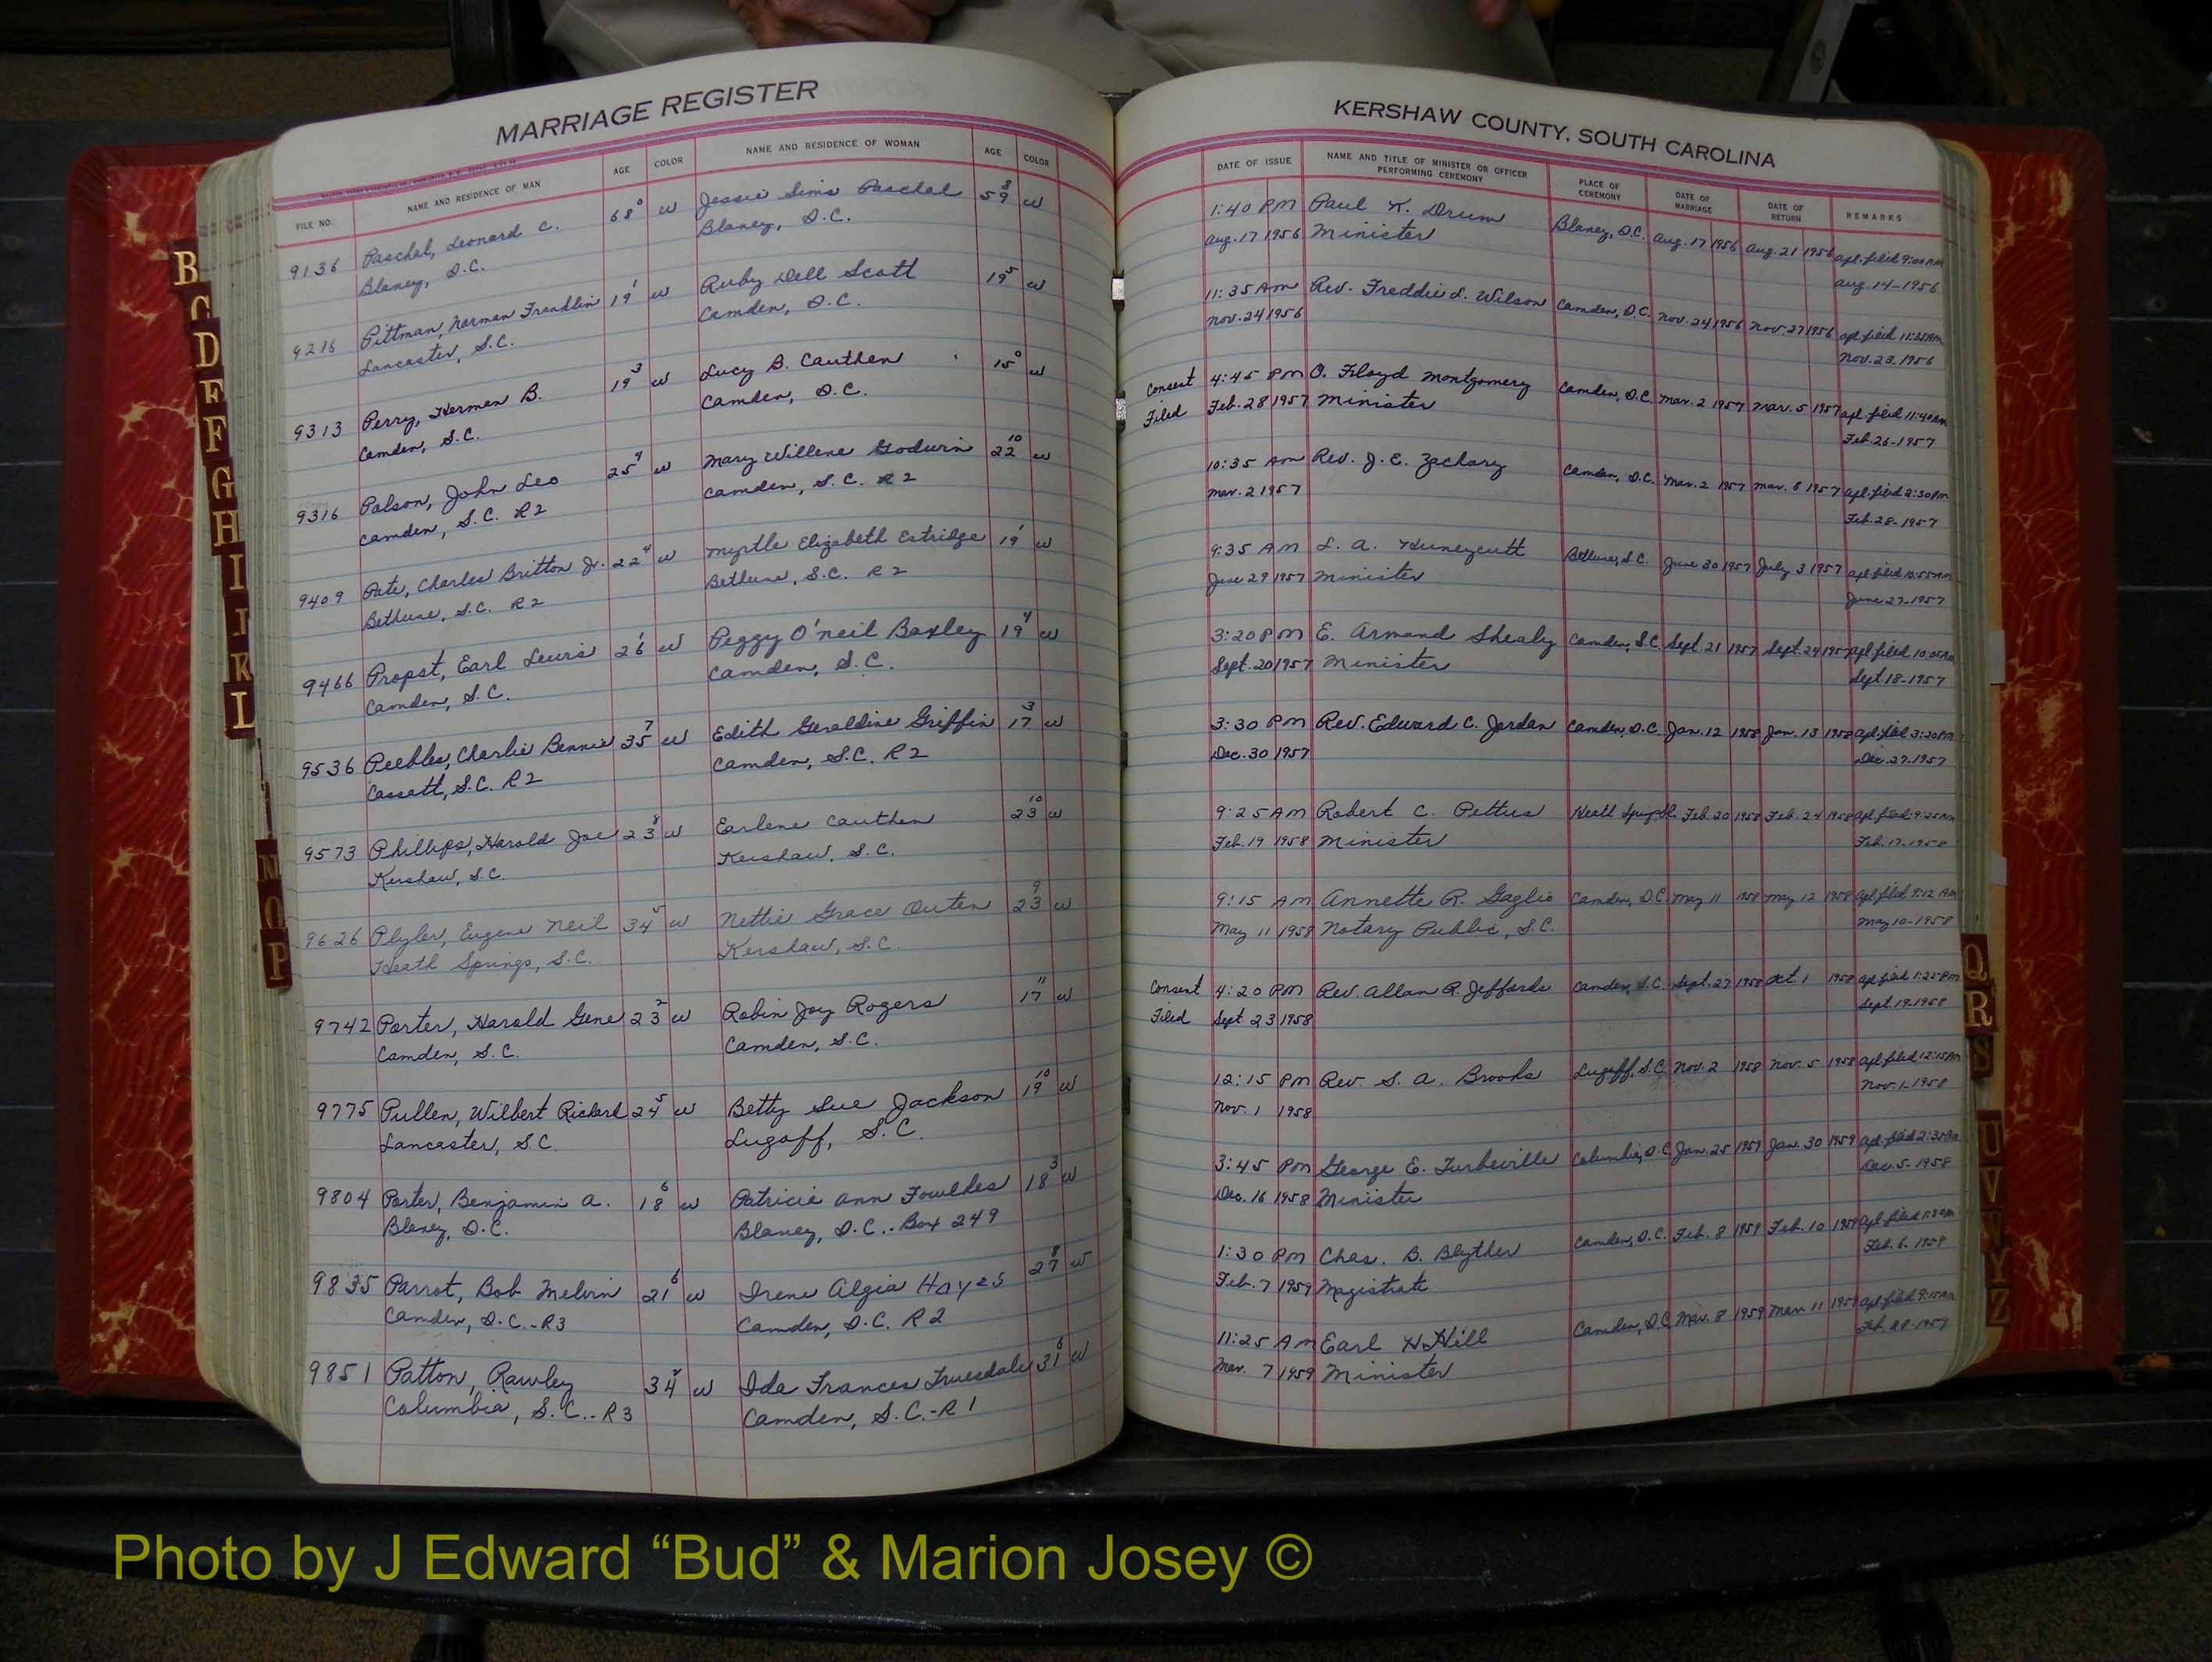 MARRIAGE REGISTER
FILE NO. NAME AND RESIDENCE OF MAN AGE COLOR NAME AND RESIDENCE OF WOMAN AGE COLOR
9136 Paschal, Leonard C. 68⁰ w Jessie Sims Paschal 59⁸ w
Blaney, S.C. Blaney, S.C.
9216 Pittman, Norman Franklin 19¹ w Ruby Dell Scott 19⁵ w
Lancaster, S.C. Camden, S.C.
9313 Perry, Herman B. 19³ w Lucy B. Cauthen 15⁰ w
Camden, S.C. Camden, S.C.
9316 Polson, John Leo 25⁴ w Mary Willene Godwin 22¹⁰ w
Camden, S.C. R2 Camden, S.C. R2
9409 Pate, Charles Britton Jr. 22⁴ w Myrtle Elizabeth Estridge 19¹ w
Bethune, S.C. R2 Bethune, S.C. R2
9466 Propst, Earl Lewis 26¹ w Peggy O'neil Baxley 19⁴ w
Camden, S.C. Camden, S.C.
9536 Peebles, Charlie Bennie 35⁷ w Edith Geraldine Griffin 17³ w
Cassatt, S.C. R2 Camden, S.C. R2
9573 Phillips, Harold Joe 23⁸ w Earlene Cauthen 23¹⁰ w
Kershaw, S.C. Kershaw, S.C.
9626 Plyler, Eugene Neil 34⁵ w Nettie Grace Outen 23⁹ w
Heath Springs, S.C. Kershaw, S.C.
9742 Porter, Harold Gene 23² w Robin Joy Rogers 17¹¹ w
Camden, S.C. Camden, S.C.
9775 Pullen, Wilbert Richard 24⁵ w Betty Sue Jackson 19¹⁰ w
Lancaster, S.C. Lugoff, S.C.
9804 Porter, Benjamin A. 18⁶ w Patricia Ann Foulkes 18³ w
Blaney, S.C. Blaney, S.C. - Box 249
9835 Parrot, Bob Melvin 21⁶ w Irene Algia Hayes 27⁸ w
Camden, S.C. - R3 Camden, S.C. R2
9851 Patton, Rawley 34 w Ida Frances Truesdale 31⁶ w
Columbia, S.C. - R3 Camden, S.C. - R1
KERSHAW COUNTY, SOUTH CAROLINA
DATE OF ISSUE NAME AND TITLE OF MINISTER OR OFFICER PERFORMING CEREMONY PLACE OF CEREMONY DATE OF MARRIAGE DATE OF RETURN REMARKS
1:40 PM Paul K. Drum Blaney, S.C. Aug. 17 1956 Aug. 21 1956 apl. filed 9:00 AM
Aug. 17 1956 Minister Aug. 14-1956
11:35 AM Rev. Freddie L. Wilson Camden, S.C. Nov. 24 1956 Nov. 27 1956 apl. filed 11:25 AM
Nov. 24 1956 Nov. 23. 1956
Consent 4:45 PM O. Floyd Montgomery Camden, S.C. Mar. 2 1957 Mar. 5 1957 apl. filed 11:40 AM
Filed Feb. 28 1957 Minister Feb. 26-1957
10:35 AM Rev. J. E. Zachary Camden, S.C. Mar. 2 1957 Mar. 8 1957 apl. filed 2:30 PM
Mar. 2 1957 Feb. 28-1957
9:35 AM L. A. Huneycutt Bethune, S.C. June 30 1957 July 3 1957 apl. filed 10:55 AM
June 29 1957 Minister June 27-1957
3:20 PM E. Armand Shealy Camden, S.C. Sept. 21 1957 Sept. 24 1957 apl. filed 10:05 AM
Sept. 20 1957 Minister Sept 18-1957
3:30 PM Rev. Edward C. Jordan Camden, S.C. Jan. 12 1958 Jan. 13 1958 apl. filed 3:20 PM
Dec. 30 1957 Dec. 27-1957
9:25 AM Robert C. Pettus Heath Springs, S.C. Feb. 20 1958 Feb. 24 1958 apl. filed 9:25 AM
Feb. 19 1958 Minister Feb. 17-1958
9:15 AM Annette R. Gaglio Camden, S.C. May 11 1958 May 12 1958 apl. filed 9:12 AM
May 11 1958 Notary Public, S.C. May 10-1958
Consent 4:20 PM Rev. Allan R. Jeffords Camden, S.C. Sept. 27 1958 Oct 1 1958 apl. filed 1:25 PM
Filed Sept 23 1958 Sept. 19-1958
12:15 PM Rev. S. A. Brooks Lugoff, S.C. Nov. 2 1958 Nov. 5 1958 apl. filed 12:15 AM
Nov. 1 1958 Nov. 1-1958
3:45 PM George E. Turbeville Columbia, S.C. Jan. 25 1959 Jan. 30 1959 apl. filed
Dec. 16 1958 Minister Dec. 5-1958
1:30 PM Chas. B. Blyther Camden, S.C. Feb. 8 1959 Feb. 10 1959 apl. filed
Feb. 7 1959 Magistrate Feb. 6-1959
11:25 AM Earl H Hill Camden, S.C. Mar. 8 1959 Mar. 11 1959 apl. filed 9:15 AM
Mar. 7 1959 Minister Feb. 28-1959
B
C
D
E
F
G
H
I
J
K
L
N
O
P
Q
R
S
U
V
W
Y
Z
Photo by J Edward “Bud” & Marion Josey ©